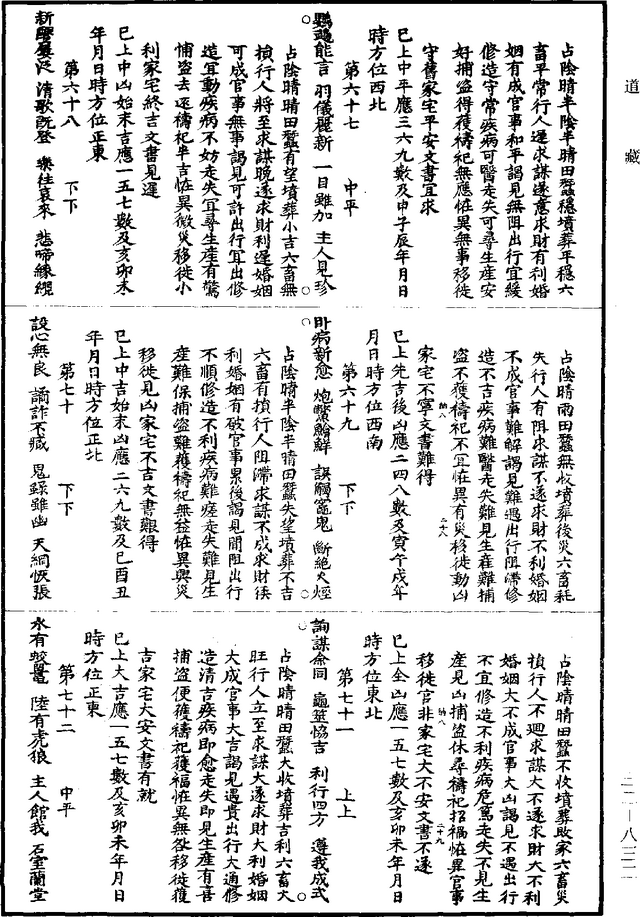 道藏
占陰晴半陰半晴田蠶穩墳葬平穩六
畜平常行人遲求謀遂意求財有利婚
姻有成官事和平謁見無阻出行宜緩
修造守常疾病可醫走失可尋生產安
好捕盜得獲禱祀無應怪異無事移徙
守舊家宅平安文書宜求
巳上中平應三六九數及申子辰年月日
時方位西北
第六十七 中平
鸚鵡能言 羽儀麗新 一目雖加 主人見珍
占陰晴晴田蠶有望墳葬小吉六畜無
損行人將至求謀晚遂求財利遲婚姻
可成官事無事謁見可許出行宜出修
造宜動疾病不妨走失宜尋生產有驚
捕盜去遠禱祀半吉怪異微災移徙小
利家宅終吉文書見遲
巳上中凶始末吉應一五七數及亥卯未
年月日時方位正東
第六十八 下下
新醪屢泛 清歌既登 樂往哀來 悲啼
占陰晴雨田蠶無收墳葬後災六畜耗
失行人有阻求謀不遂求財不利婚姻
不成官事難解謁見難遇出行阻滯修
造不吉疾病難醫走失難見生產難捕
盜不獲禱祀不宜怪異有災移徙動凶
家宅不寧文書難得
巳上先吉後凶應二四八數及寅午戌年
月日時方位西南
第六十九 下下
卧病新愈 炮鱉鱠鮮 誤觸竈鬼 斷絕火煙
占陰晴半陰半晴田蠶失望墳葬不吉
六畜有損行人阻滯求謀不成求財後
利婚姻有破官事累後謁見間阻出行
不順修造不利疾病難瘥走失難見生
產難保捕盜難獲禱祀無益怪異興災
移徙見凶家宅不吉文書艱得
巳上中吉始末凶應二六九數及巳酉丑
年月日時方位正北
第七十 下下
設心無良 譎詐不臧 鬼錄雖幽 天網恢張
占陰晴晴田蠶不收墳葬敗家六畜災
損行人不迴求謀大不遂求財大不利
婚姻大不成官事大凶謁見不遇出行
不宜修造不利疾病危篤走失不見生
產見凶捕盜休尋禱祀招禍怪異官事
移徙官非家宅大不安文書不遂
巳上全凶應一五七數及亥卯未年月日
時方位東北
第七十一 上上
詢謀僉同 龜筮協吉 利行四方 遵我成式
占陰晴晴田蠶大收墳葬吉利六畜大
旺行人立至求謀大遂求財大利婚姻
大成官事大吉謁見遇貴出行大通修
造清吉疾病即愈走失即見生產有喜
捕盜便獲禱祀獲福怪異無欲移徙獲
吉家宅大安文書有就
巳上大吉應一五七數及亥卯未年月日
時方位正東
第七十二 中平
水有蛟鼉 陸有虎狼 主人館我 石室蘭堂